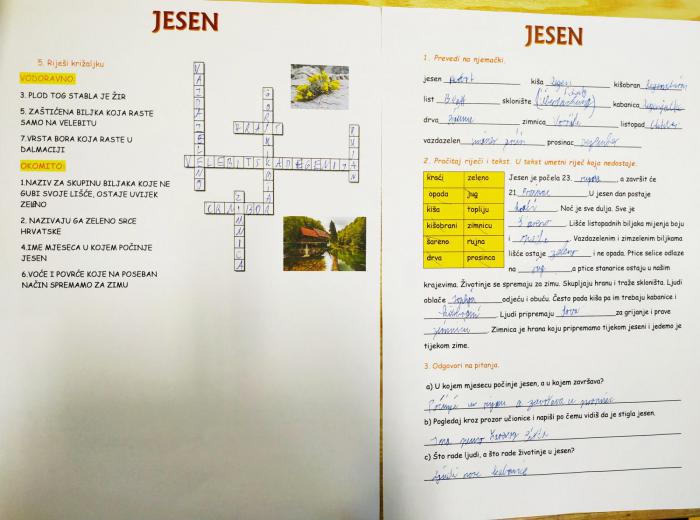 JESEN
5. Riješi križaljku
VODORAVNO:
3. PLOD TOG STABLA JE ŽIR
5. ZAŠTIĆENA BILJKA KOJA RASTE
SAMO NA VELEBITU
7.VRSTA BORA KOJA RASTE U
DALMACIJI
OKOMITO:
1.NAZIV ZA SKUPINU BILJAKA KOJE NE
GUBI SVOJE LIŠĆE, OSTAJE UVIJEK
ZELENO
2. NAZIVAJU GA ZELENO SRCE
HRVATSKE
4.IME MJESECA U KOJEM POČINJE
JESEN
6.VOĆE I POVRĆE KOJE NA POSEBAN
NAČIN SPREMAMO ZA ZIMU
VAZDAZELENO
GORSKI KOTAR
HRAST
RUJAN
VELEBITSKA DEGENIJA
CRNI BOR
ZIMNICA
JESEN
1. Prevedi na njemački.
jesen kiša Regen kišobran Regenschirm
list Blatt sklonište kabanica
drva zimnica Vorräte listopad Oktober
vazdazelen immer grün prosinac
2. Pročitaj riječi i tekst. U tekst umetni riječ koja nedostaje.
kraći zeleno
opada jug
kiša topliju
kišobrani zimnicu
šareno rujna
drva prosinca
Jesen je počela 23. rujna, a završit će
21. Prosinca. U jesen dan postaje
kraći. Noć je sve dulja. Sve je
šareno. Lišće listopadnih biljaka mijenja boju
i opada. Vazdazelenim i zimzelenim biljkama
lišće ostaje zeleno i ne opada. Ptice selice odlaze
na jug a ptice stanarice ostaju u našim
krajevima. Životinje se spremaju za zimu. Skupljaju hranu i traže skloništa. Ljudi
oblače topliju odjeću i obuću. Često pada kiša pa im trebaju kabanice i
kišobrani. Ljudi pripremaju drva za grijanje i prave
zimnicu. Zimnica je hrana koju pripremamo tijekom jeseni i jedemo je
tijekom zime.
3. Odgovori na pitanja.
a) U kojem mjesecu počinje jesen, a u kojem završava?
Počinje u rujnu a završava u prosincu
b) Pogledaj kroz prozor učionice i napiši po čemu vidiš da je stigla jesen.
Ima puno
c) Što rade ljudi, a što rade životinje u jesen?
Ljudi nose kabanice